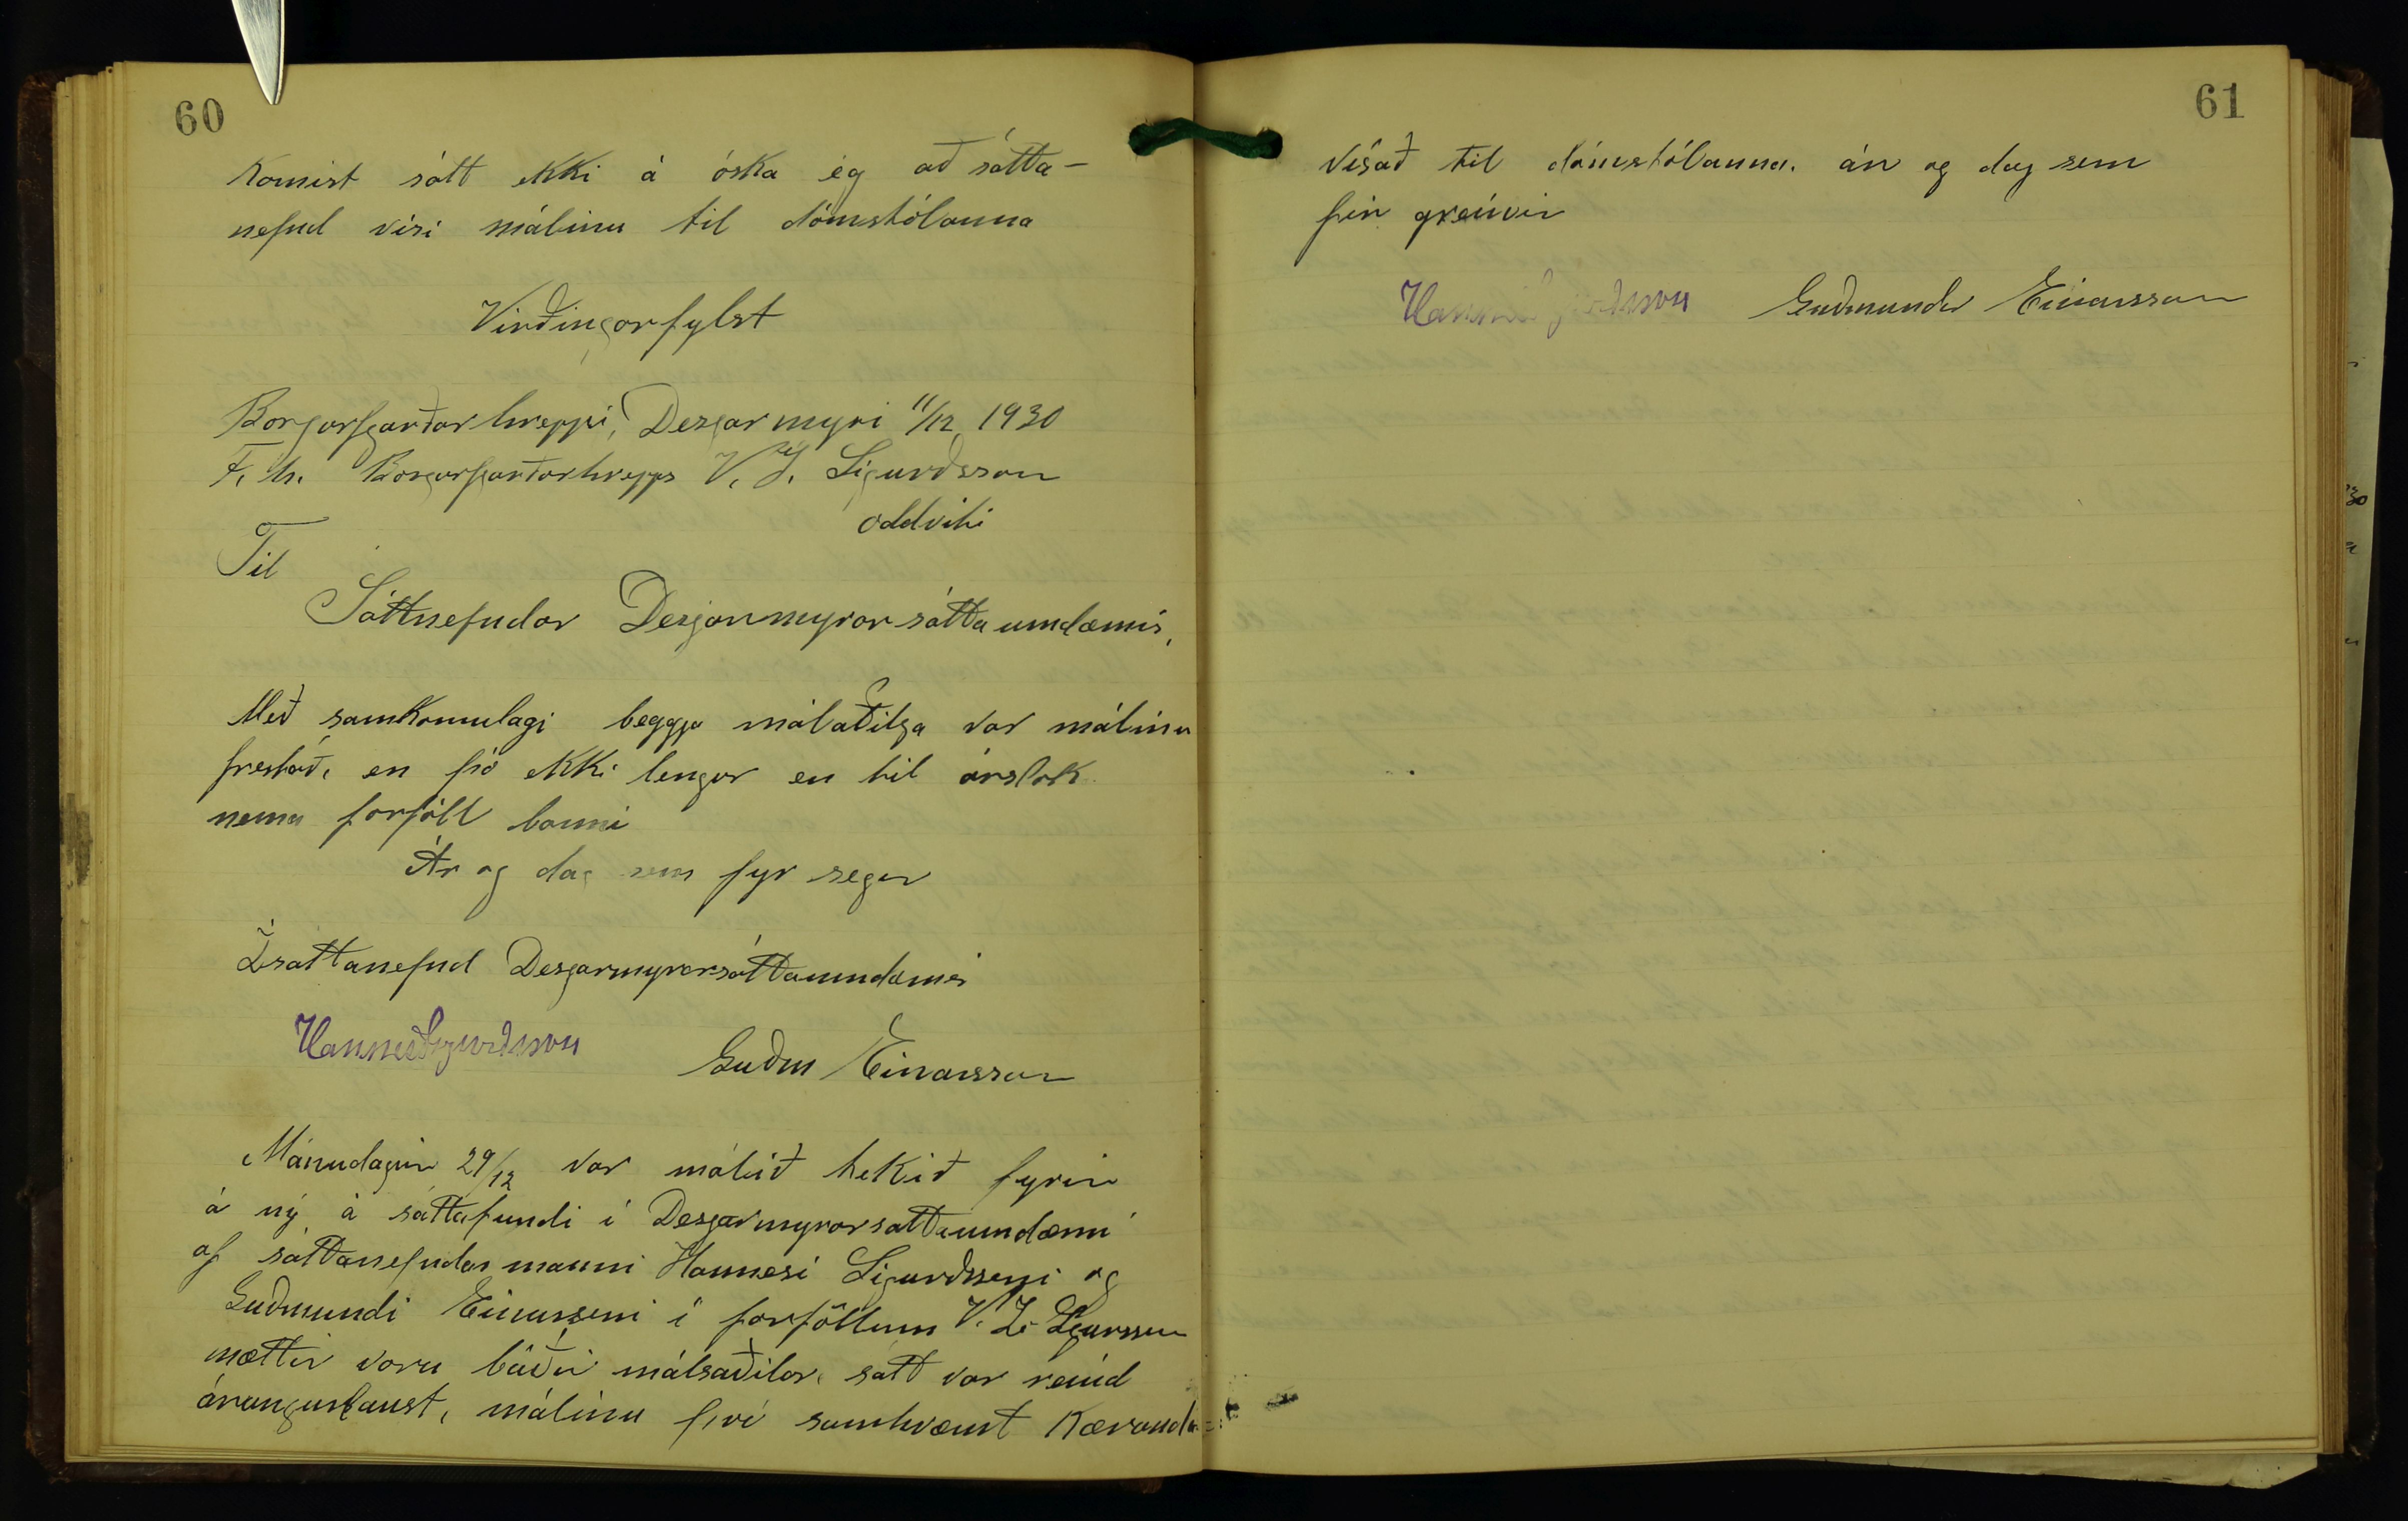 60
Komist sátt ekki á óska ég að sátta-
nefnd vísi málinu til dómstólanna
Virðingarfylst
Borgarfjarðarhreppi, Desjarmýri 11/12 1930
F. h. Borgarfjarðarhrepps V. J. Sigurðsson
oddviti
Til
Sáttnefndar Desjarmýrar sáttaumdæmis,
Með samkomulagi beggja málaðilja var málinu
frestað, en þó ekki lengur en til ársloka
nema forföll banni
Ár og dag sem fyr segir
Í sáttanefnd Desjarmýrarsáttaumdæmis
Hannes Sigurðsson Guðm Einarsson
Mánudaginn 29/12 var málið tekið fyrir
á ný á sáttafundi í Desjarmýrarsáttaumdæmi
af sáttanefndarmanni Hannesi Sigurðsseni og
Guðmundi Einarsseni í forföllum V. J.
mættir voru báðir málsaðilar, sátt var reind
árangurslaust, málinu því samkvæmt Kæranda
61
vísað til dómstólanna. ár og dag sem
fir greinir
Hannes Sigurðsson Guðmundr Einarsson